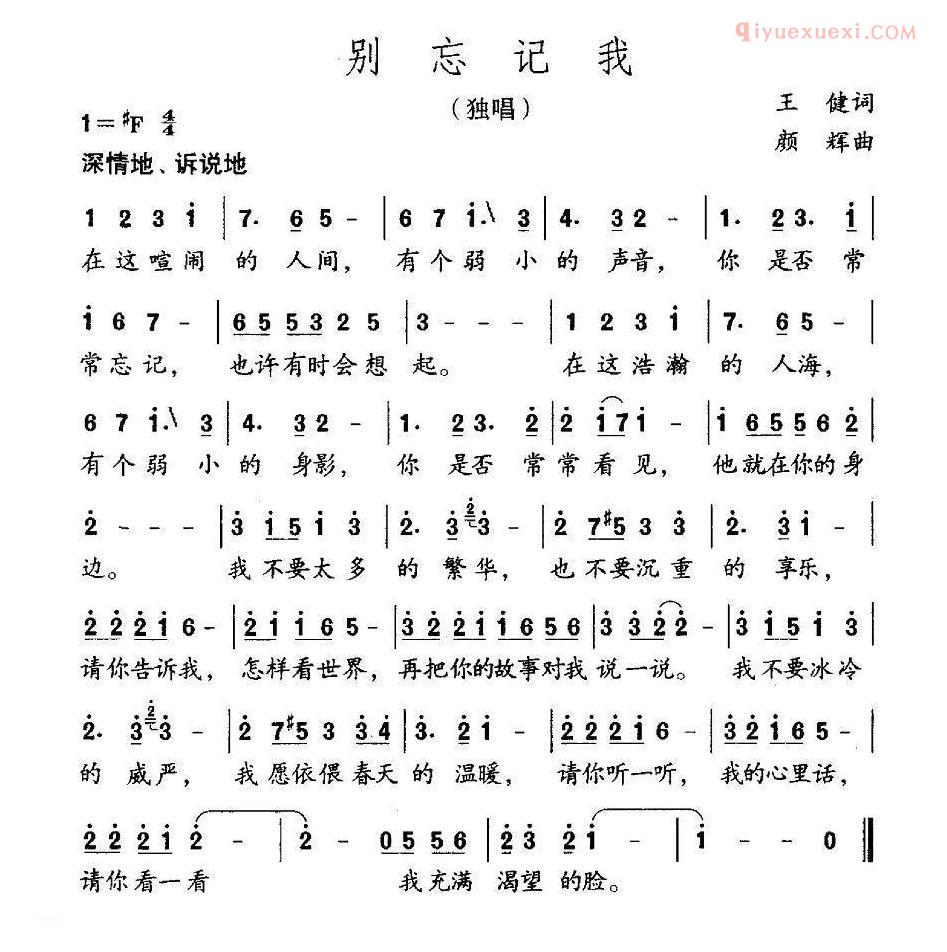 qiyuexuexi.COM
别忘记我
（独唱）
王健词
1=#F 4/4
颜辉曲
深情地、诉说地
1 2 3 i | 7. 6 5 - | 6 7 i. \ 3 | 4. 3 2 - | 1. 2 3. i |
在这喧闹 的 人间， 有个弱 小的 声音， 你 是否 常
i 6 7 - | 6 5 5 3 2 5 | 3 - - - | 1 2 3 i | 7. 6 5 - |
常忘记， 也许有时会想 起。 在这浩瀚 的 人海，
6 7 i. \ 3 | 4. 3 2 - | 1. 2 3. 2 | 2 i 7 i - | i 6 5 5 6 2 |
有个弱 小的 身影， 你 是否 常常看见， 他就在你的身
2 - - - | 3 i 5 i 3 | 2. 3 2 3 - | 2 7 #5 3 3 | 2. 3 i - |
边。 我不要太多 的 繁华， 也不要沉重 的 享乐，
2 2 2 i 6 - | 2 i i 6 5 - | 3 2 2 i i 6 5 6 | 3 3 2 2 - | 3 i 5 i 3 |
请你告诉我， 怎样看世界， 再把你的故事对我 说一说。 我不要冰冷
2. 3 2 3 - | 2 7 #5 3 3 4 | 3. 2 i - | 2 2 2 i 6 - | 3 2 i 6 5 - |
的 威严， 我愿依偎春天的 温暖， 请你听一听， 我的心里话，
2 2 2 i 2 - | 2 - 0 5 5 5 6 | 2 3 2 i - | i - - 0 ‖
请你看一看 我充满 渴望 的脸。